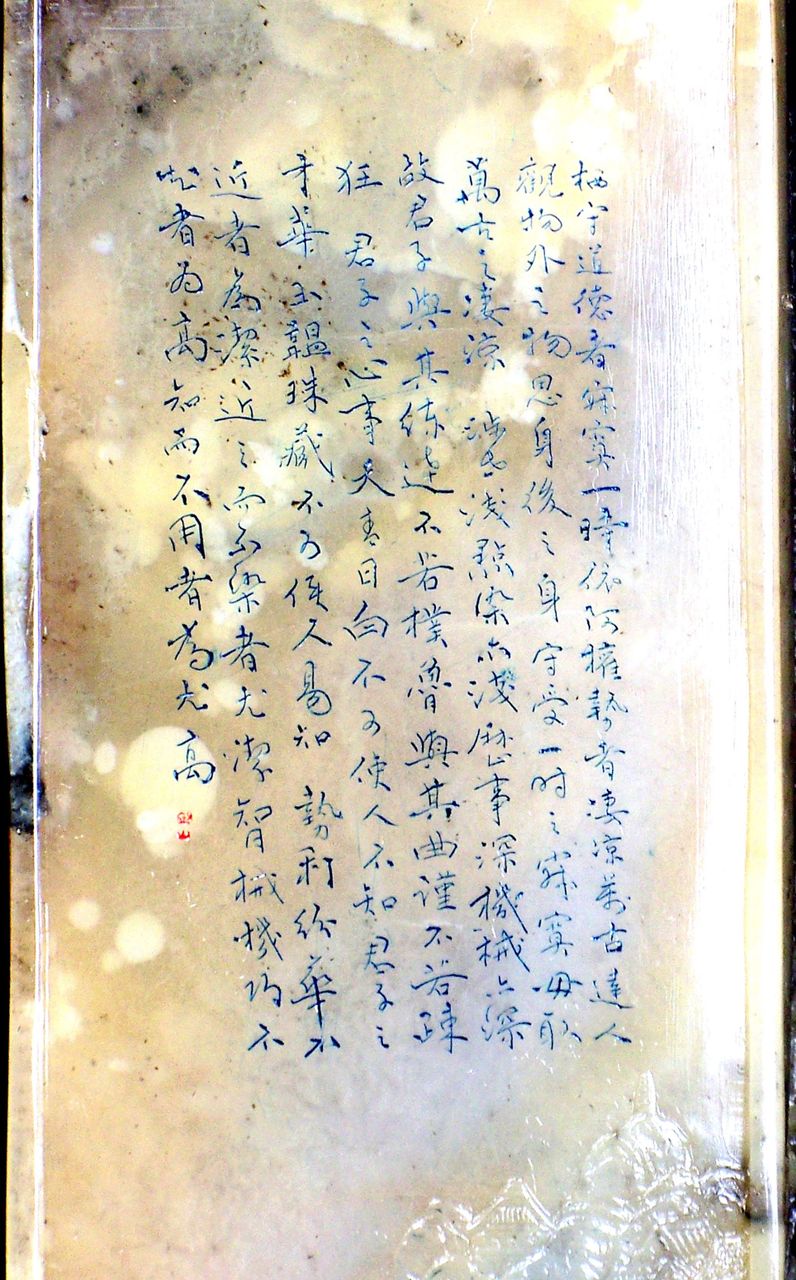 栖守道德者寂寞一時依阿權勢者凄凉萬古達人
觀物外之物思身後之身守受一时之寂寞毋取
萬古之凄涼 涉世淺點染亦淺歷事深機械亦深
故君子與其練達不若樸魯與其曲謹不若疎
狂 君子之心事天青日白不可使人不知君子之
才華玉韞珠藏不可使人易知 勢利紛華不
近者為潔近之而不染者尤潔智械機巧不
知者为高知而不用者為尤高